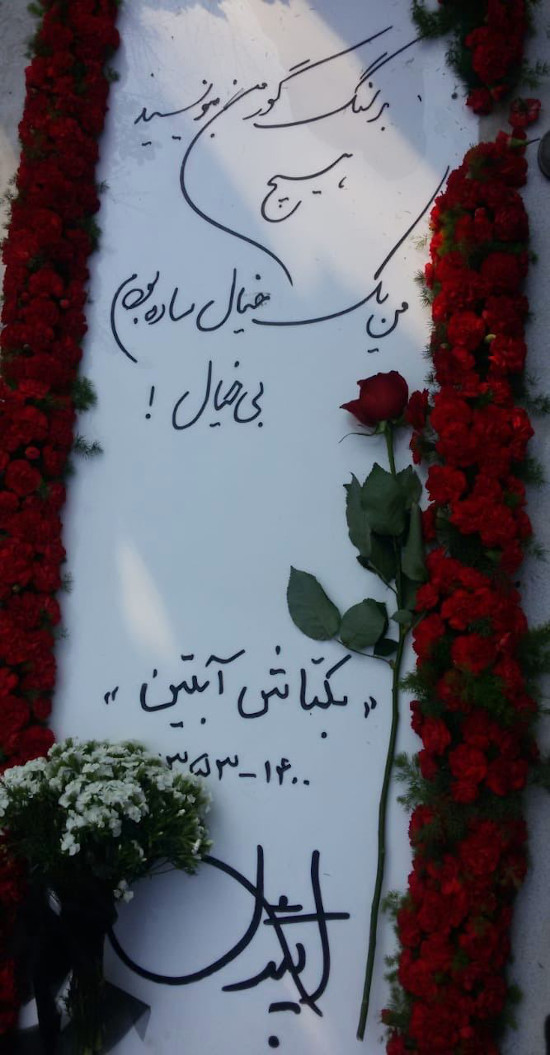 بر سنگ گور من بنویسید
هیچ،
من یک خیال ساده بودم
بی‌خیال!
«بکتاش آبتین»
۱۳۵۳-۱۴۰۰